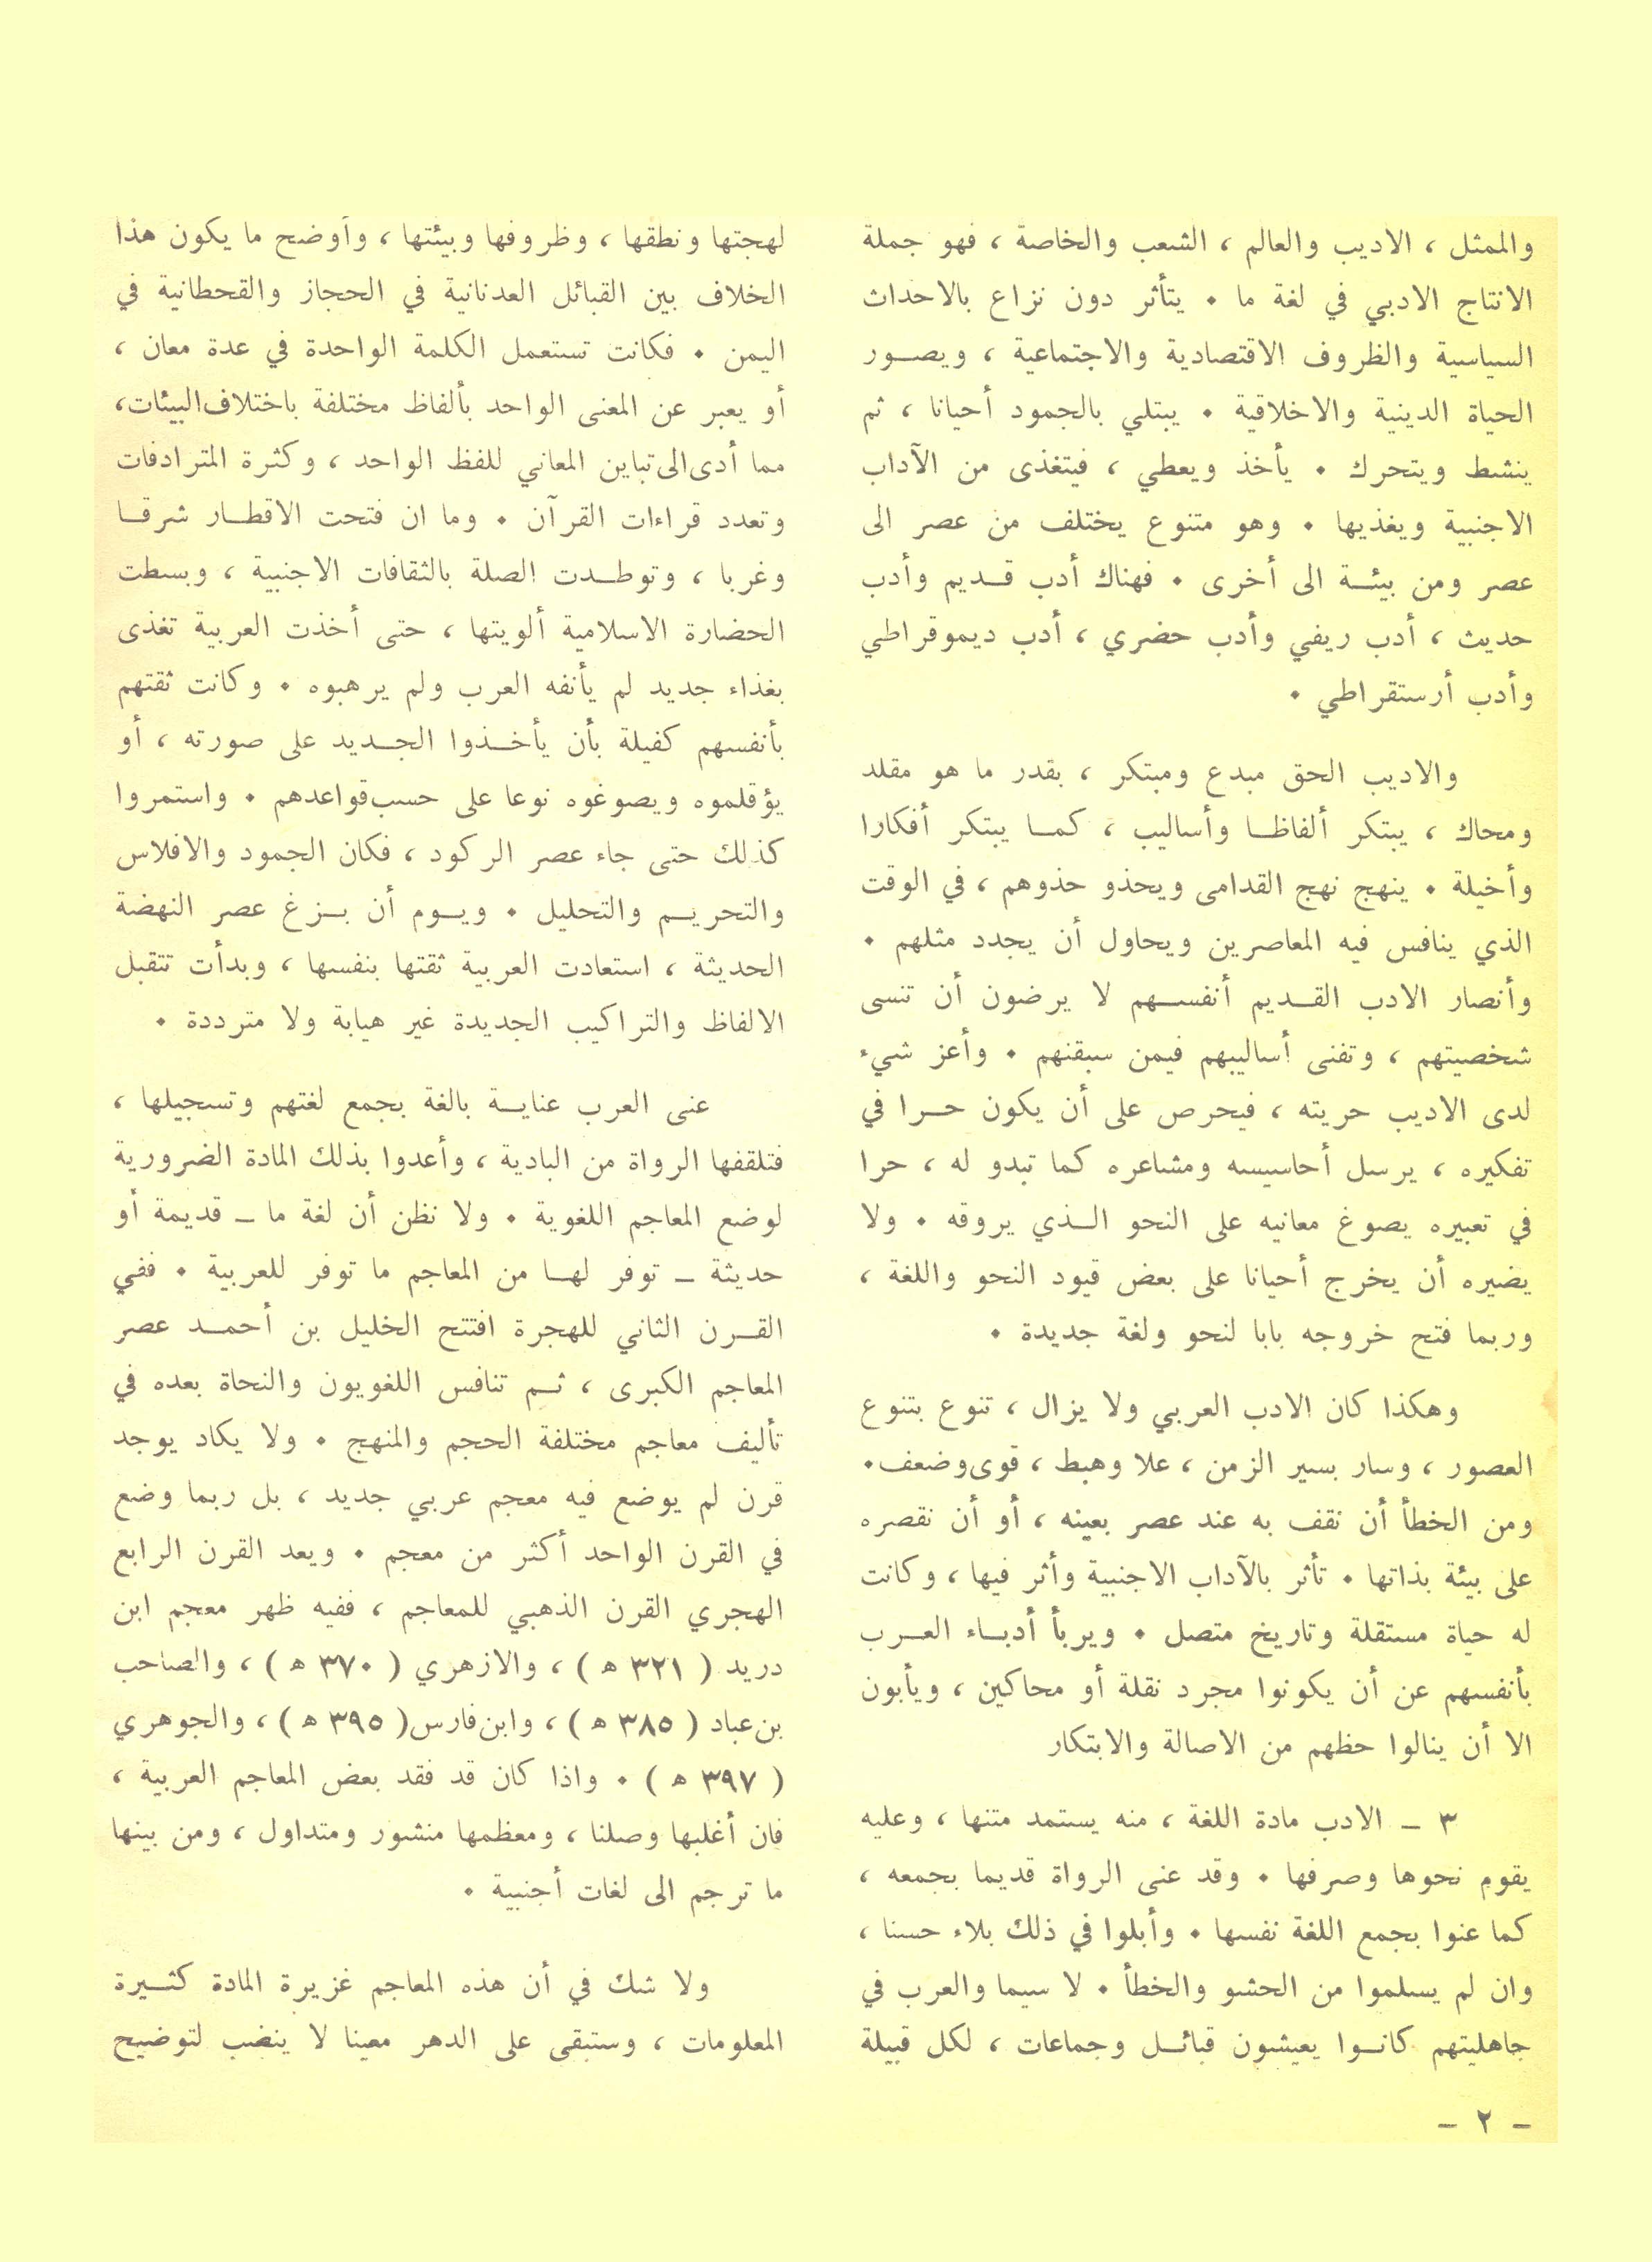 والممثل ، الاديب والعالم ، الشعب والخاصة ، فهو جملة
الانتاج الادبي في لغة ما ٠ يتأثر دون نزاع بالاحداث
السياسية والظروف الاقتصادية والاجتماعية ، ويصور
الحياة الدينية والاخلاقية ٠ يبتلي بالجمود أحيانا ، ثم
ينشط ويتحرك ٠ يأخذ ويعطي ، فيتغذى من الآداب
الاجنبية ويغذيها ٠ وهو متنوع يختلف من عصر الى
عصر ومن بيئة الى أخرى ٠ فهناك أدب قديم وأدب
حديث ، أدب ريفي وأدب حضري ، أدب ديموقراطي
وأدب أرستقراطي ٠
والاديب الحق مبدع ومبتكر ، بقدر ما هو مقلد
ومحاك ، يبتكر ألفاظا وأساليب ، كما يبتكر أفكارا
وأخيلة ٠ ينهج نهج القدامى ويحذو حذوهم ، في الوقت
الذي ينافس فيه المعاصرين ويحاول أن يجدد مثلهم ٠
وأنصار الادب القديم أنفسهم لا يرضون أن تنسى
شخصيتهم ، وتفنى أساليبهم فيمن سبقنهم ٠ وأعز شيء
لدى الاديب حريته ، فيحرص على أن يكون حرا في
تفكيره ، يرسل أحاسيسه ومشاعره كما تبدو له ، حرا
في تعبيره يصوغ معانيه على النحو الذي يروقه ٠ ولا
يضيره أن يخرج أحيانا على بعض قيود النحو واللغة ،
وربما فتح خروجه بابا لنحو ولغة جديدة ٠
وهكذا كان الادب العربي ولا يزال ، تنوع بتنوع
العصور ، وسار بسير الزمن ، علا وهبط ، قوى وضعف٠
ومن الخطأ أن نقف به عند عصر بعينه ، أو أن نقصره
على بيئة بذاتها ٠ تأثر بالآداب الاجنبية وأثر فيها ، وكانت
له حياة مستقلة وتاريخ متصل ٠ ويربأ أدباء العرب
بأنفسهم عن أن يكونوا مجرد نقلة أو محاكين ، ويأبون
الا أن ينالوا حظهم من الاصالة والابتكار
٣ ـ الادب مادة اللغة ، منه يستمد متنها ، وعليه
يقوم نحوها وصرفها ٠ وقد عنى الرواة قديما بجمعه ،
كما عنوا بجمع اللغة نفسها ٠ وأبلوا في ذلك بلاء حسنا ،
وان لم يسلموا من الحشو والخطأ ٠ لا سيما والعرب في
جاهليتهم كانوا يعيشون قبائل وجماعات ، لكل قبيلة
لهجتها ونطقها ، وظروفها وبيئتها ، وأوضح ما يكون هذا
الخلاف بين القبائل العدنانية في الحجاز والقحطانية في
اليمن ٠ فكانت تستعمل الكلمة الواحدة في عدة معان ،
أو يعبر عن المعنى الواحد بألفاظ مختلفة باختلاف البيئات،
مما أدى الى تباين المعاني للفظ الواحد ، وكثرة المترادفات
وتعدد قراءات القرآن ٠ وما ان فتحت الاقطار شرقا
وغربا ، وتوطدت الصلة بالثقافات الاجنبية ، وبسطت
الحضارة الاسلامية ألويتها ، حتى أخذت العربية تغذى
بغذاء جديد لم يأنفه العرب ولم يرهبوه ٠ وكانت ثقتهم
بأنفسهم كفيلة بأن يأخذوا الجديد على صورته ، أو
يؤقلموه ويصوغوه نوعا على حسب قواعدهم ٠ واستمروا
كذلك حتى جاء عصر الركود ، فكان الجمود والافلاس
والتحريم والتحليل ٠ ويوم أن بزغ عصر النهضة
الحديثة ، استعادت العربية ثقتها بنفسها ، وبدأت تتقبل
الالفاظ والتراكيب الجديدة غير هيابة ولا مترددة ٠
عنى العرب عناية بالغة بجمع لغتهم وتسجيلها ،
فتلقفها الرواة من البادية ، وأعدوا بذلك المادة الضرورية
لوضع المعاجم اللغوية ٠ ولا نظن أن لغة ما ـ قديمة أو
حديثة ـ توفر لها من المعاجم ما توفر للعربية ٠ ففي
القرن الثاني للهجرة افتتح الخليل بن أحمد عصر
المعاجم الكبرى ، ثم تنافس اللغويون والنحاة بعده في
تأليف معاجم مختلفة الحجم والمنهج ٠ ولا يكاد يوجد
قرن لم يوضع فيه معجم عربي جديد ، بل ربما وضع
في القرن الواحد أكثر من معجم ٠ ويعد القرن الرابع
الهجري القرن الذهبي للمعاجم ، ففيه ظهر معجم ابن
دريد ( ٣٢١ هـ ) ، والازهري ( ٣٧٠ هـ ) ، والصاحب
بن عباد ( ٣٨٥ هـ ) ، وابن فارس ( ٣٩٥ هـ ) ، والجوهري
( ٣٩٧ هـ ) ٠ واذا كان قد فقد بعض المعاجم العربية ،
فان أغلبها وصلنا ، ومعظمها منشور ومتداول ، ومن بينها
ما ترجم الى لغات أجنبية ٠
ولا شك في أن هذه المعاجم غزيرة المادة كثيرة
المعلومات ، وستبقى على الدهر معينا لا ينضب لتوضيح
ـ ٢ ـ